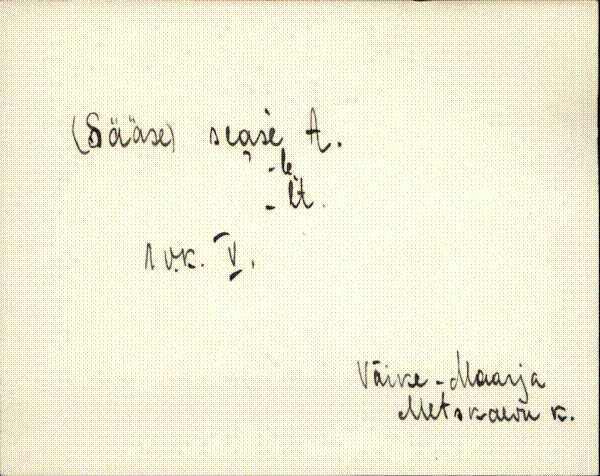 (Sääse) sease t.
-le
-lt.
1 v.k. V.
Väike-Maarja
Metskaevu k.